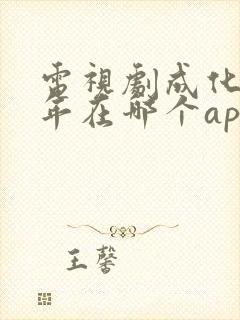 電視劇成化
年在哪个ap
王馨